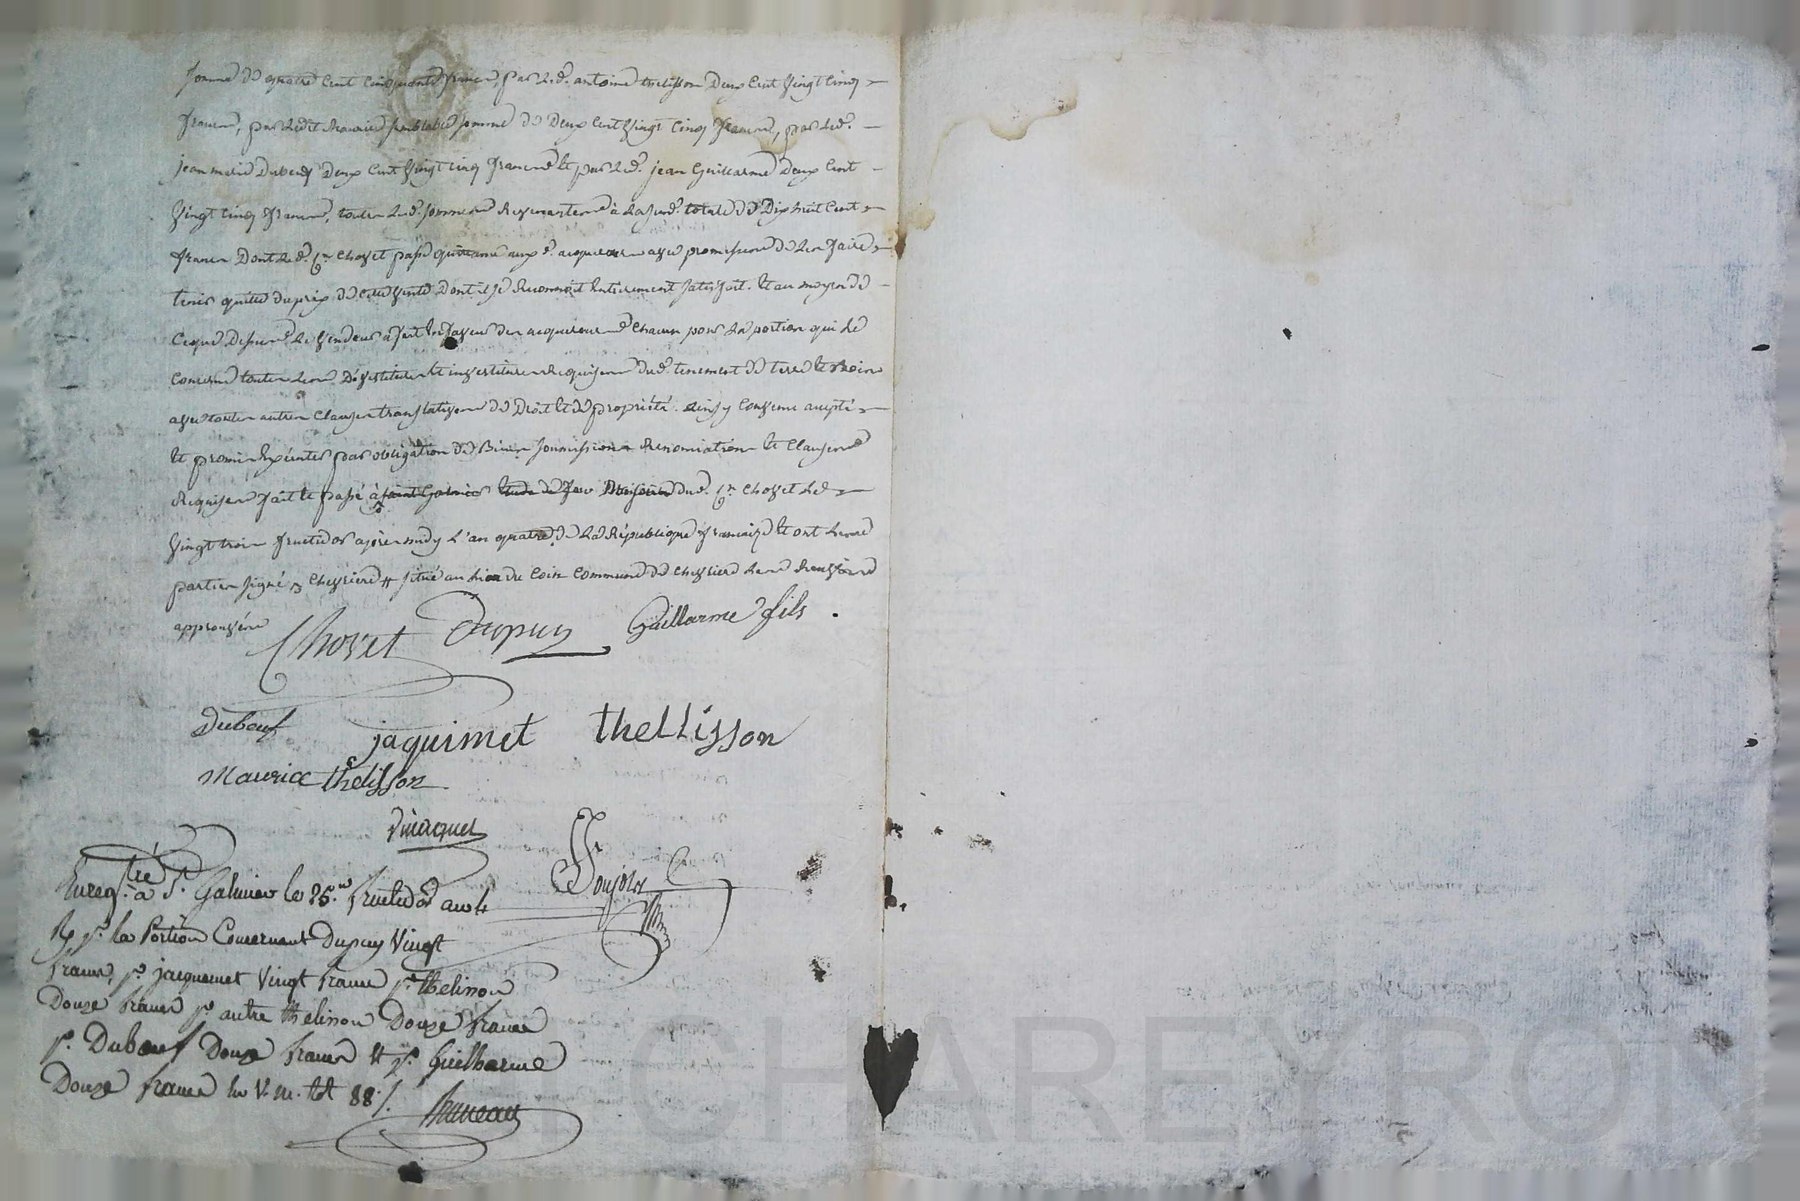 somme de quatre cent cinquante francs, par led. antoine thelisson Deux Cent Vingt Cinq
francs, par ledit Maurice semblable somme de Deux Cent Vingt Cinq francs, par led.
jean marie Dubeuf Deux Cent Vingt cinq francs et par led. jean Guillarme Deux Cent
Vingt Cinq francs, toutes led. sommes Revenantes à la sus d. totale de Dix huit Cent
francs Dont led. Cn. Chovet passe quittance aux d. acquereurs avec promission de les faire
tenir quittes du prix de cette Vente Dont il se Reconnoit Entierement satisfait. Et au moyen de
Ceque Dessus, le Vendeur a fait En faveur des acquereurs Chacun pour la portion qui le
Concerne toutes les Dévestitures et investitures Requises dud. tenement de terre et
avec toutes autres Clauses translatives de Droit et de propriété. ainsy Convenu accepté
Et promis Exécuter par obligation de Biens soumissions Renonciations et Clauses
Requises fait et passé à saint Galmier dud. Cn. Chovet le
Vingt trois fructidor après midy l'an quatre de la République française et ont les
parties signé Chevriere # situé au lieu du Coin Commune de Chevriere les Renvois
approuvés
Chovet Dupuy Guillarme fils .
Dubeuf jaquimet theLLisson
Maurice thelisson
j. jacquet
Enregtré à St. Galmier le 25. fructidor an 4
R. pr. la Portion Concernant Dupuy Vingt
francs, pr. jacquemet Vingt francs pr. thelisson
Douze francs pr. autre thelisson Douze francs
pr. Dubeuf Douze francs et pr. Guilharme
Douze francs En V. m. tot 88.
CHAREYRON